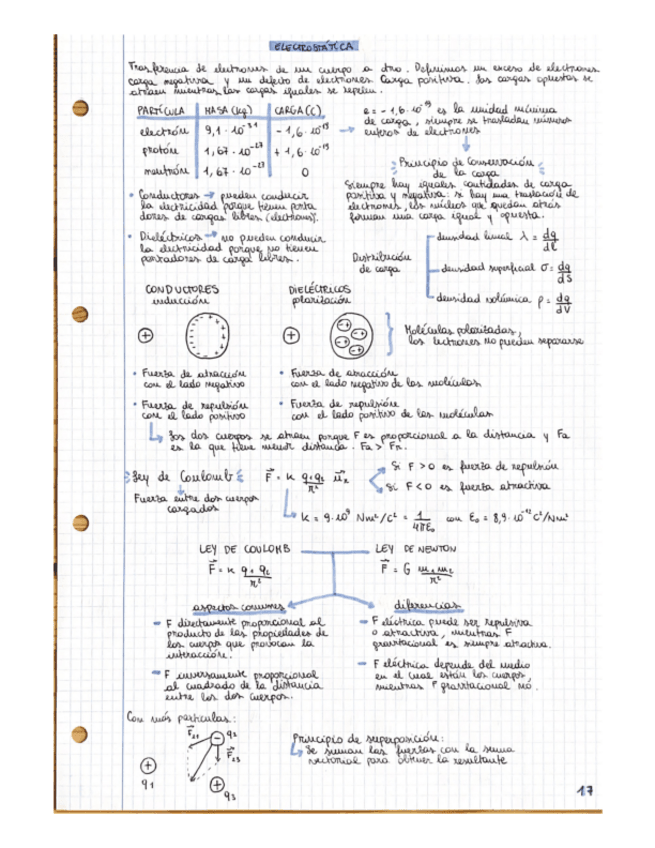 ELECTROSTÁTICA
Trasferencia de electrones de un cuerpo a otro. Definimos un exceso de electrones
carga negativa y un defecto de electrones Carga positiva. Las cargas opuestas se
atraen mientras las cargas iguales se repelen.
PARTÍCULA MASA (kg) CARGA (C)
electrón 9,1 · 10⁻³¹ - 1,6 · 10⁻¹⁹
protón 1,67 · 10⁻²⁷ + 1,6 · 10⁻¹⁹
neutrón 1,67 · 10⁻²⁷ 0
e = - 1,6 · 10⁻¹⁹ es la unidad mínima
de carga, siempre se trasladan números
enteros de electrones
Principio de Conservación
de la carga
Siempre hay iguales cantidades de carga
positiva y negativa. si hay una traslación de
electrones, los núcleos que quedan atrás
forman una carga igual y opuesta.
• Conductores → pueden conducir
la electricidad porque tienen porta
dores de cargas libres (electrones).
• Dieléctricos → no pueden conducir
la electricidad porque no tienen
portadores de carga libres.
Distribución
de carga
densidad lineal λ = dq/dℓ
densidad superficial σ = dq/dS
densidad volúmica ρ = dq/dV
CONDUCTORES
inducción
DIELÉCTRICOS
polarización
Moléculas polarizadas,
los electrones no pueden separarse
• Fuerza de atracción
con el lado negativo
• Fuerza de repulsión
con el lado positivo
• Fuerza de atracción
con el lado negativo de las moléculas
• Fuerza de repulsión
con el lado positivo de las moléculas
Los dos cuerpos se atraen porque F es proporcional a la distancia y Fa
es la que tiene menor distancia. Fa > Fr.
Ley de Coulomb F = k q₁q₂/r² uᵣ
Si F > 0 es fuerza de repulsión
Si F < 0 es fuerza atractiva
Fuerza entre dos cuerpos
cargados
k = 9·10⁹ Nm²/C² = 1/4πε₀ con ε₀ = 8,9·10⁻¹² C²/Nm²
LEY DE COULOMB LEY DE NEWTON
F = k q₁q₂/r² F = G m₁m₂/r²
aspectos comunes
- F directamente proporcional al
producto de las propiedades de
los cuerpos que provocan la
interacción.
- F inversamente proporcional
al cuadrado de la distancia
entre los dos cuerpos.
diferencias
- F eléctrica puede ser repulsiva
o atractiva, mientras F
gravitacional es siempre atractiva.
- F eléctrica depende del medio
en el cual están los cuerpos,
mientras F gravitacional no.
Con más partículas:
F₂₁ q₂
F₂₃
q₁
q₃
Principio de superposición:
Se suman las fuerzas con la suma
vectorial para obtener la resultante
17